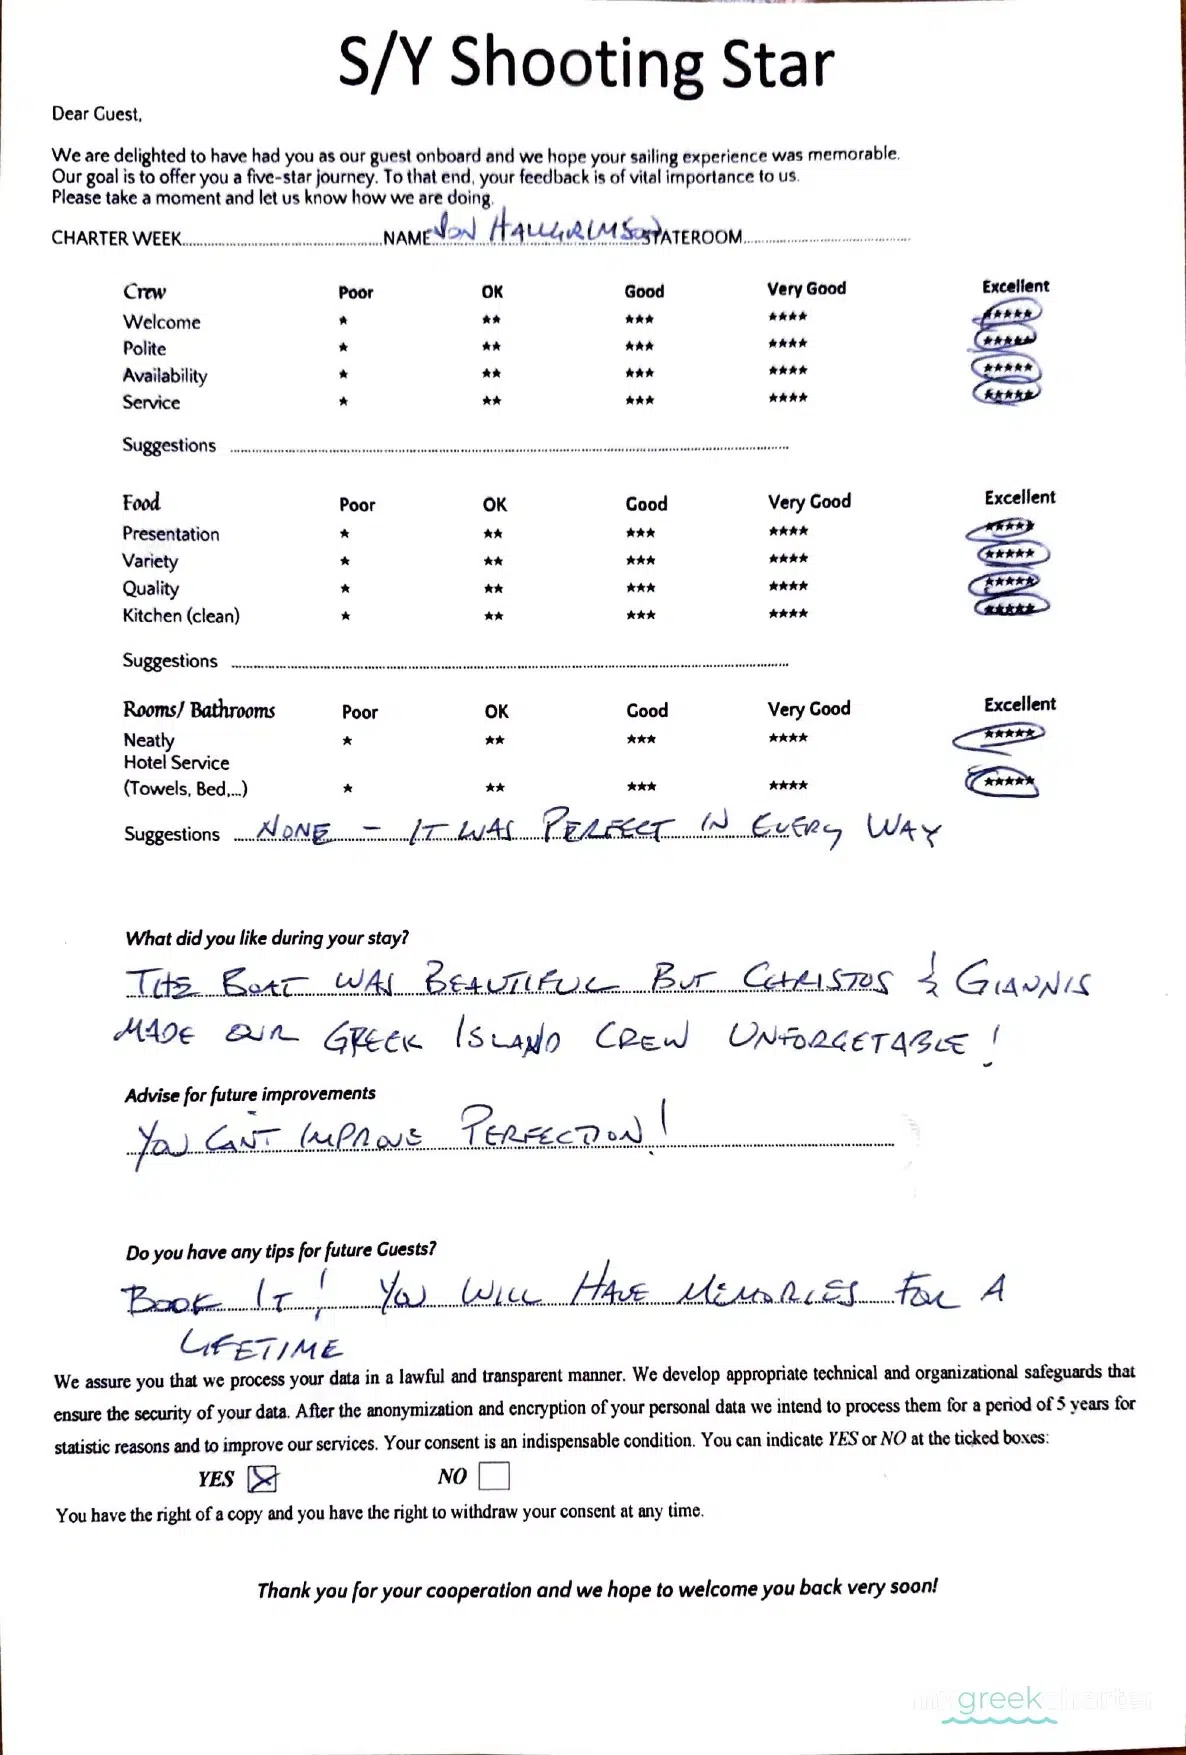 S/Y Shooting Star
Dear Guest,
We are delighted to have had you as our guest onboard and we hope your sailing experience was memorable.
Our goal is to offer you a five-star journey. To that end, your feedback is of vital importance to us.
Please take a moment and let us know how we are doing.
CHARTER WEEK NAME Jon STATEROOM
Crew Poor OK Good Very Good Excellent
Welcome ★ ★★ ★★★ ★★★★ ★★★★★
Polite ★ ★★ ★★★ ★★★★ ★★★★★
Availability ★ ★★ ★★★ ★★★★ ★★★★★
Service ★ ★★ ★★★ ★★★★ ★★★★★
Suggestions
Food Poor OK Good Very Good Excellent
Presentation ★ ★★ ★★★ ★★★★ ★★★★★
Variety ★ ★★ ★★★ ★★★★ ★★★★★
Quality ★ ★★ ★★★ ★★★★ ★★★★★
Kitchen (clean) ★ ★★ ★★★ ★★★★ ★★★★★
Suggestions
Rooms/ Bathrooms Poor OK Good Very Good Excellent
Neatly ★ ★★ ★★★ ★★★★ ★★★★★
Hotel Service
(Towels, Bed,...) ★ ★★ ★★★ ★★★★ ★★★★★
Suggestions NONE - IT WAS PERFECT IN EVERY WAY
What did you like during your stay?
THE BOAT WAS BEAUTIFUL BUT CHRISTOS & GIANNIS
MADE OUR GREEK ISLAND CREW UNFORGETABLE!
Advise for future improvements
YOU CAN'T IMPROVE PERFECTION!
Do you have any tips for future Guests?
BOOK IT! YOU WILL HAVE MEMORIES FOR A
LIFETIME
We assure you that we process your data in a lawful and transparent manner. We develop appropriate technical and organizational safeguards that
ensure the security of your data. After the anonymization and encryption of your personal data we intend to process them for a period of 5 years for
statistic reasons and to improve our services. Your consent is an indispensable condition. You can indicate YES or NO at the ticked boxes:
YES ☒ NO ☐
You have the right of a copy and you have the right to withdraw your consent at any time.
Thank you for your cooperation and we hope to welcome you back very soon!
mygreekcharter